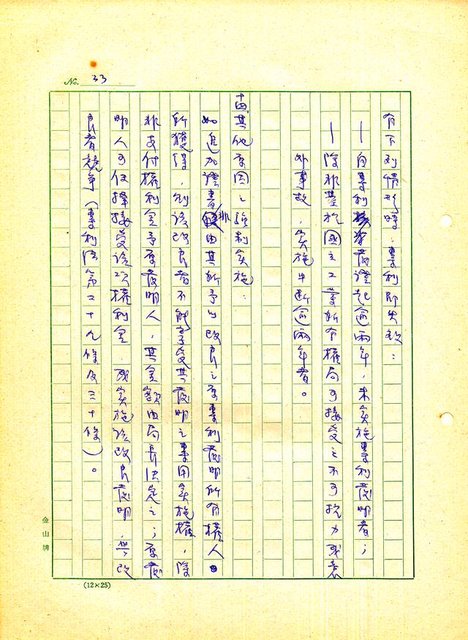 No. 33
有下列情形時,專利即失效:
—自專利發證起逾兩年,未實施專利發明者;
—除非基於國之工業所有權局可接受之不可抗力或意
外事故,實施中斷逾兩年者。
由其他原因之強制實施:
如追加證書非由其所予以改良之原專利發明所有權人
所獲得,則該改良者不能享受其發明之專用實施權,除
非支付權利金予原發明人,其金額由局長決定之;原發
明人可任擇接受該項權利金,或實施該改良發明,與改
良者競爭(專利法第二十九條及三十條)。
金山牌
(12×25)